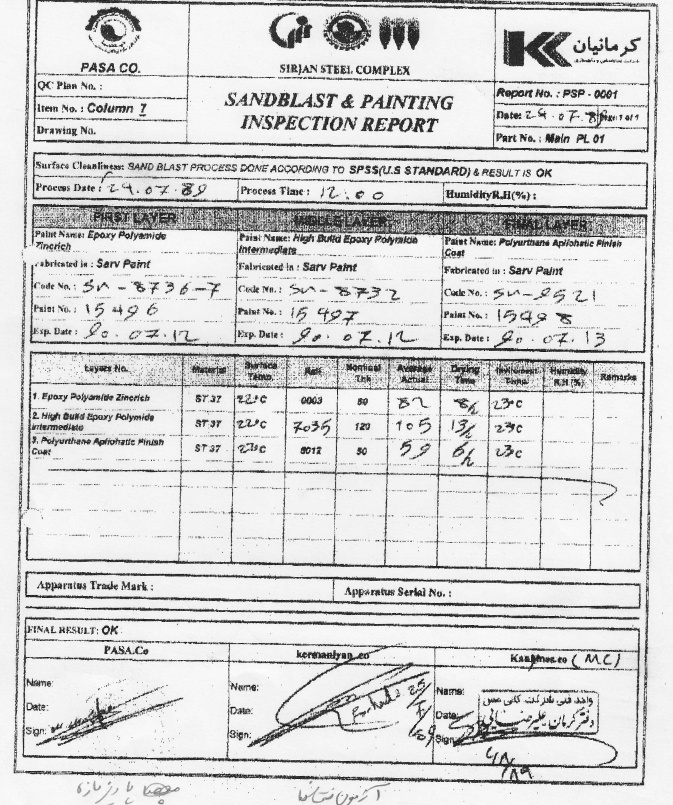 PASA CO.
SIRJAN STEEL COMPLEX
کرمانیان
QC Plan No. :
Item No. : Column 7
Drawing No.
SANDBLAST & PAINTING
INSPECTION REPORT
Report No. : PSP - 0001
Date: 29.07.89 Page: 1 of 1
Part No. : Main PL 01
Surface Cleanliness: SAND BLAST PROCESS DONE ACCORDING TO SPSS(U.S STANDARD) & RESULT IS OK
Process Date : 29.07.89 Process Time : 12:00 HumidityR.H(%) :
FIRST LAYER MIDDLE LAYER FINAL LAYER
Paint Name: Epoxy Polyamide Zincrich
Fabricated in : Sarv Paint
Code No. : SN-8736-7
Paint No. : 15496
Exp. Date : 90.07.12
Paint Name: High Build Epoxy Polymide Intermediate
Fabricated in : Sarv Paint
Code No. : SN-8732
Paint No. : 15497
Exp. Date : 90.07.12
Paint Name: Polyurthane Apliohatic Finish Coat
Fabricated in : Sarv Paint
Code No. : SN-9521
Paint No. : 15498
Exp. Date : 90.07.13
Layers No. Material Surface Temp. Ral Nominal Thk Average Actual Drying Time Enviroment Temp. Humidity R.H (%) Remarks
1. Epoxy Polyamide Zincrich ST 37 22°C 0003 50 82 8h 23°C
2. High Build Epoxy Polymide Intermediate ST 37 22°C 7035 120 105 13h 23°C
3. Polyurthane Apliohatic Finish Coat ST 37 22°C 5012 50 59 6h 23°C
Apparatus Trade Mark : Apparatus Serial No. :
FINAL RESULT: OK
PASA.Co kermaniyan.co (MC)
Name: Name: Name:
Date: Date: Date:
Sign: Sign: Sign:
واحد فنی شرکت کانی مس
دفتر کرمان علیرضا